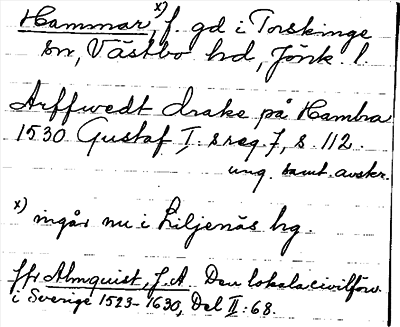 Hammar, x) f. gd i Torskinge
sn, Västbo hd, Jönk. l.
Arffwedt drake på Hambra
1530 Gustaf I:s reg. 7, s. 112.
ung. samt. avskr.
x) ingår nu i Liljenäs hg.
jfr Almquist, J. A. Den lokala civilförv.
i Sverige 1523-1630, Del II: 68.